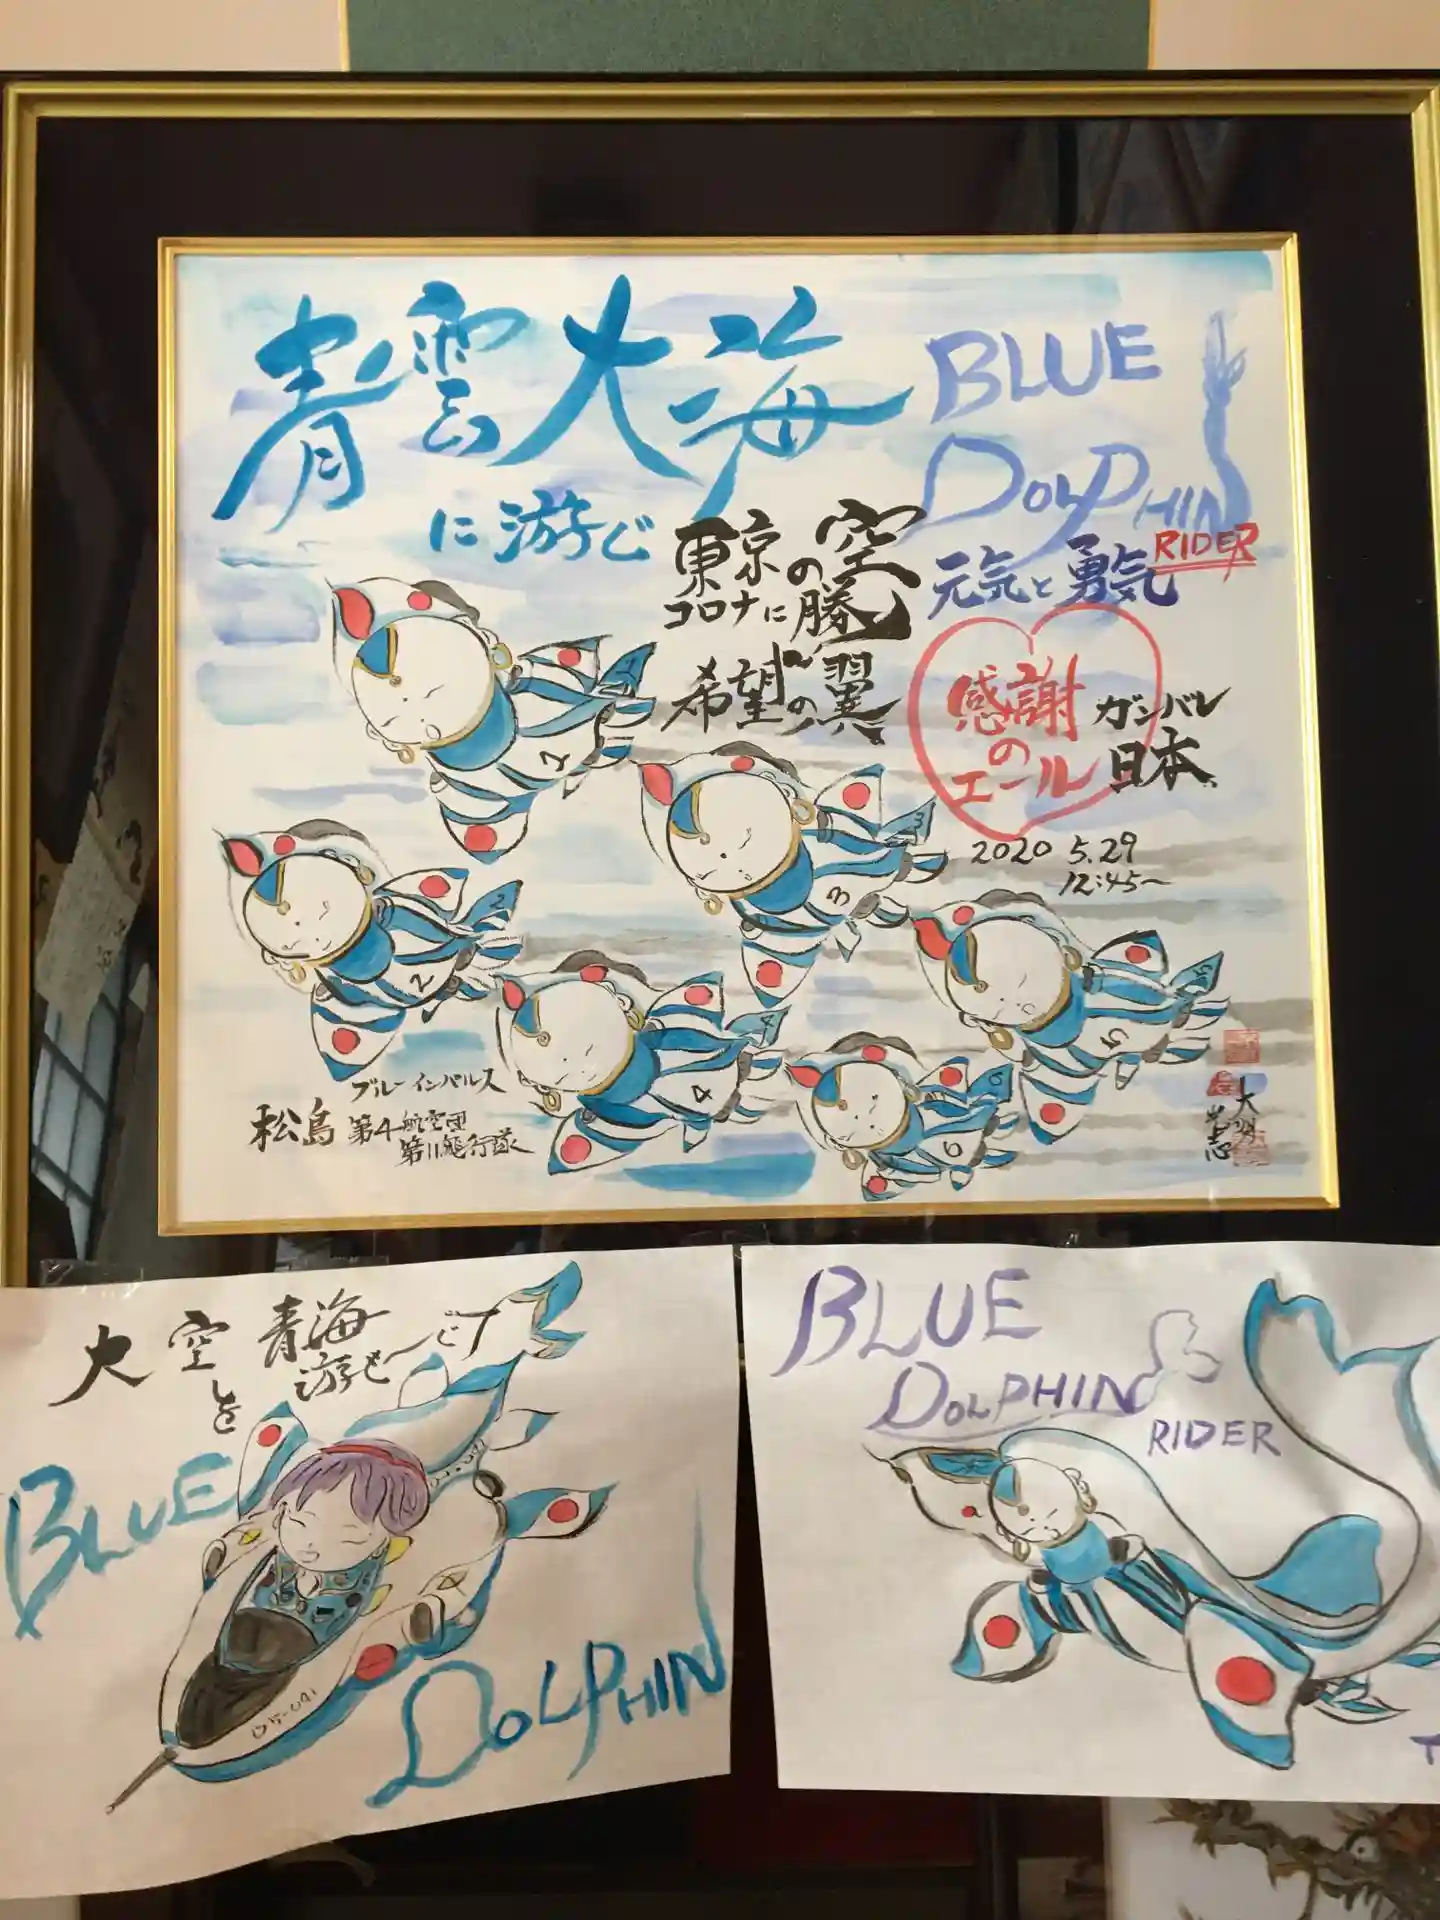 青雲大海
に游ぶ
BLUE
DOLPHIN
RIDER
東京の空
コロナに勝つ
希望の翼
元気と勇気
感謝
の
エール
ガンバレ
日本
2020 5.29
12:45~
1
1
2
2
3
3
4
4
5
5
6
6
ブルーインパルス
松島 第4航空団
第11飛行隊
大空を青海
游ぶ
BLUE
DOLPHIN
BLUE
DOLPHIN
RIDER